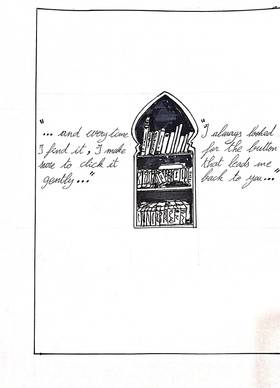 "
... and everytime
I find it, I make
sure to click it
gently..."
"I always looked
for the button
that leads me
back to you..."